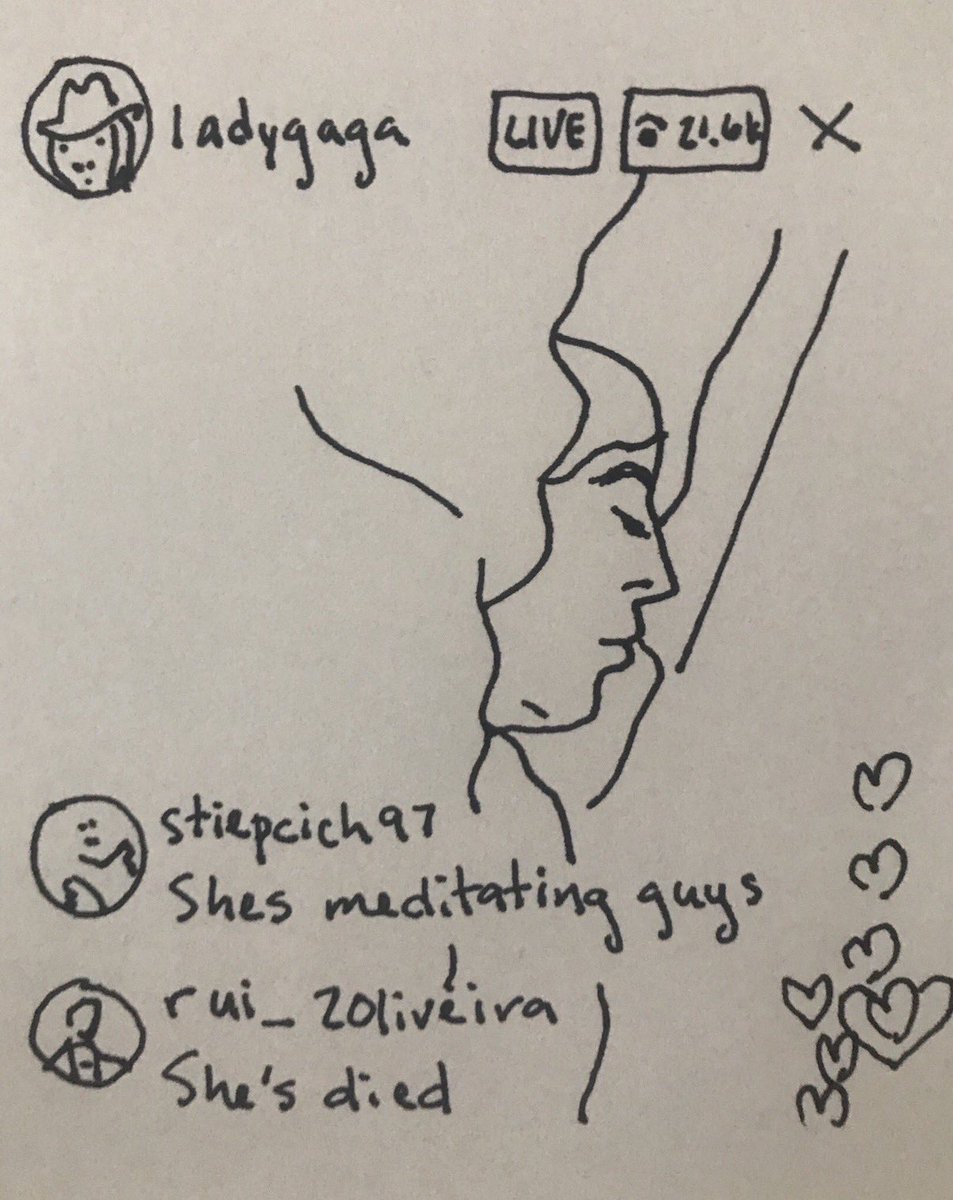 ladygaga LIVE 21.6k X
stiepcich97
Shes meditating guys
rui_20liveira
She's died